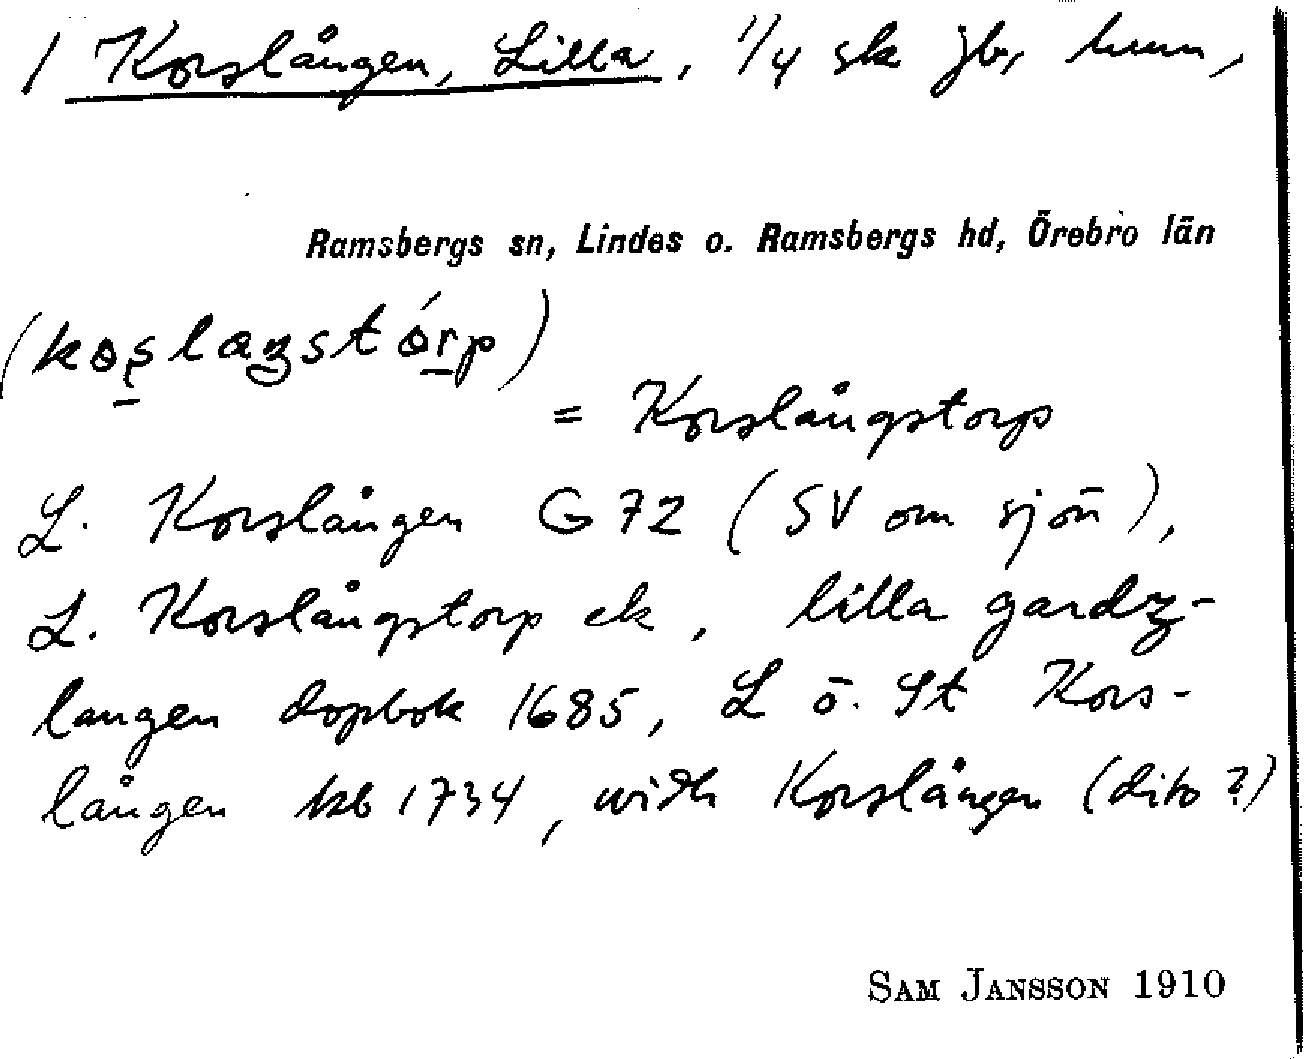 1 Korslången, Lilla, 1/4 sk jb, hmn,
Ramsbergs sn, Lindes o. Ramsbergs hd, Örebro län
= Korslångstorp
L. Korslången G 72 (SV om sjön),
L. Korslångstorp ek, lilla gardz-
langen dopbok 1685, L o. St Kors-
lången kb 1734, widh Korslången (dito?)
SAM JANSSON 1910